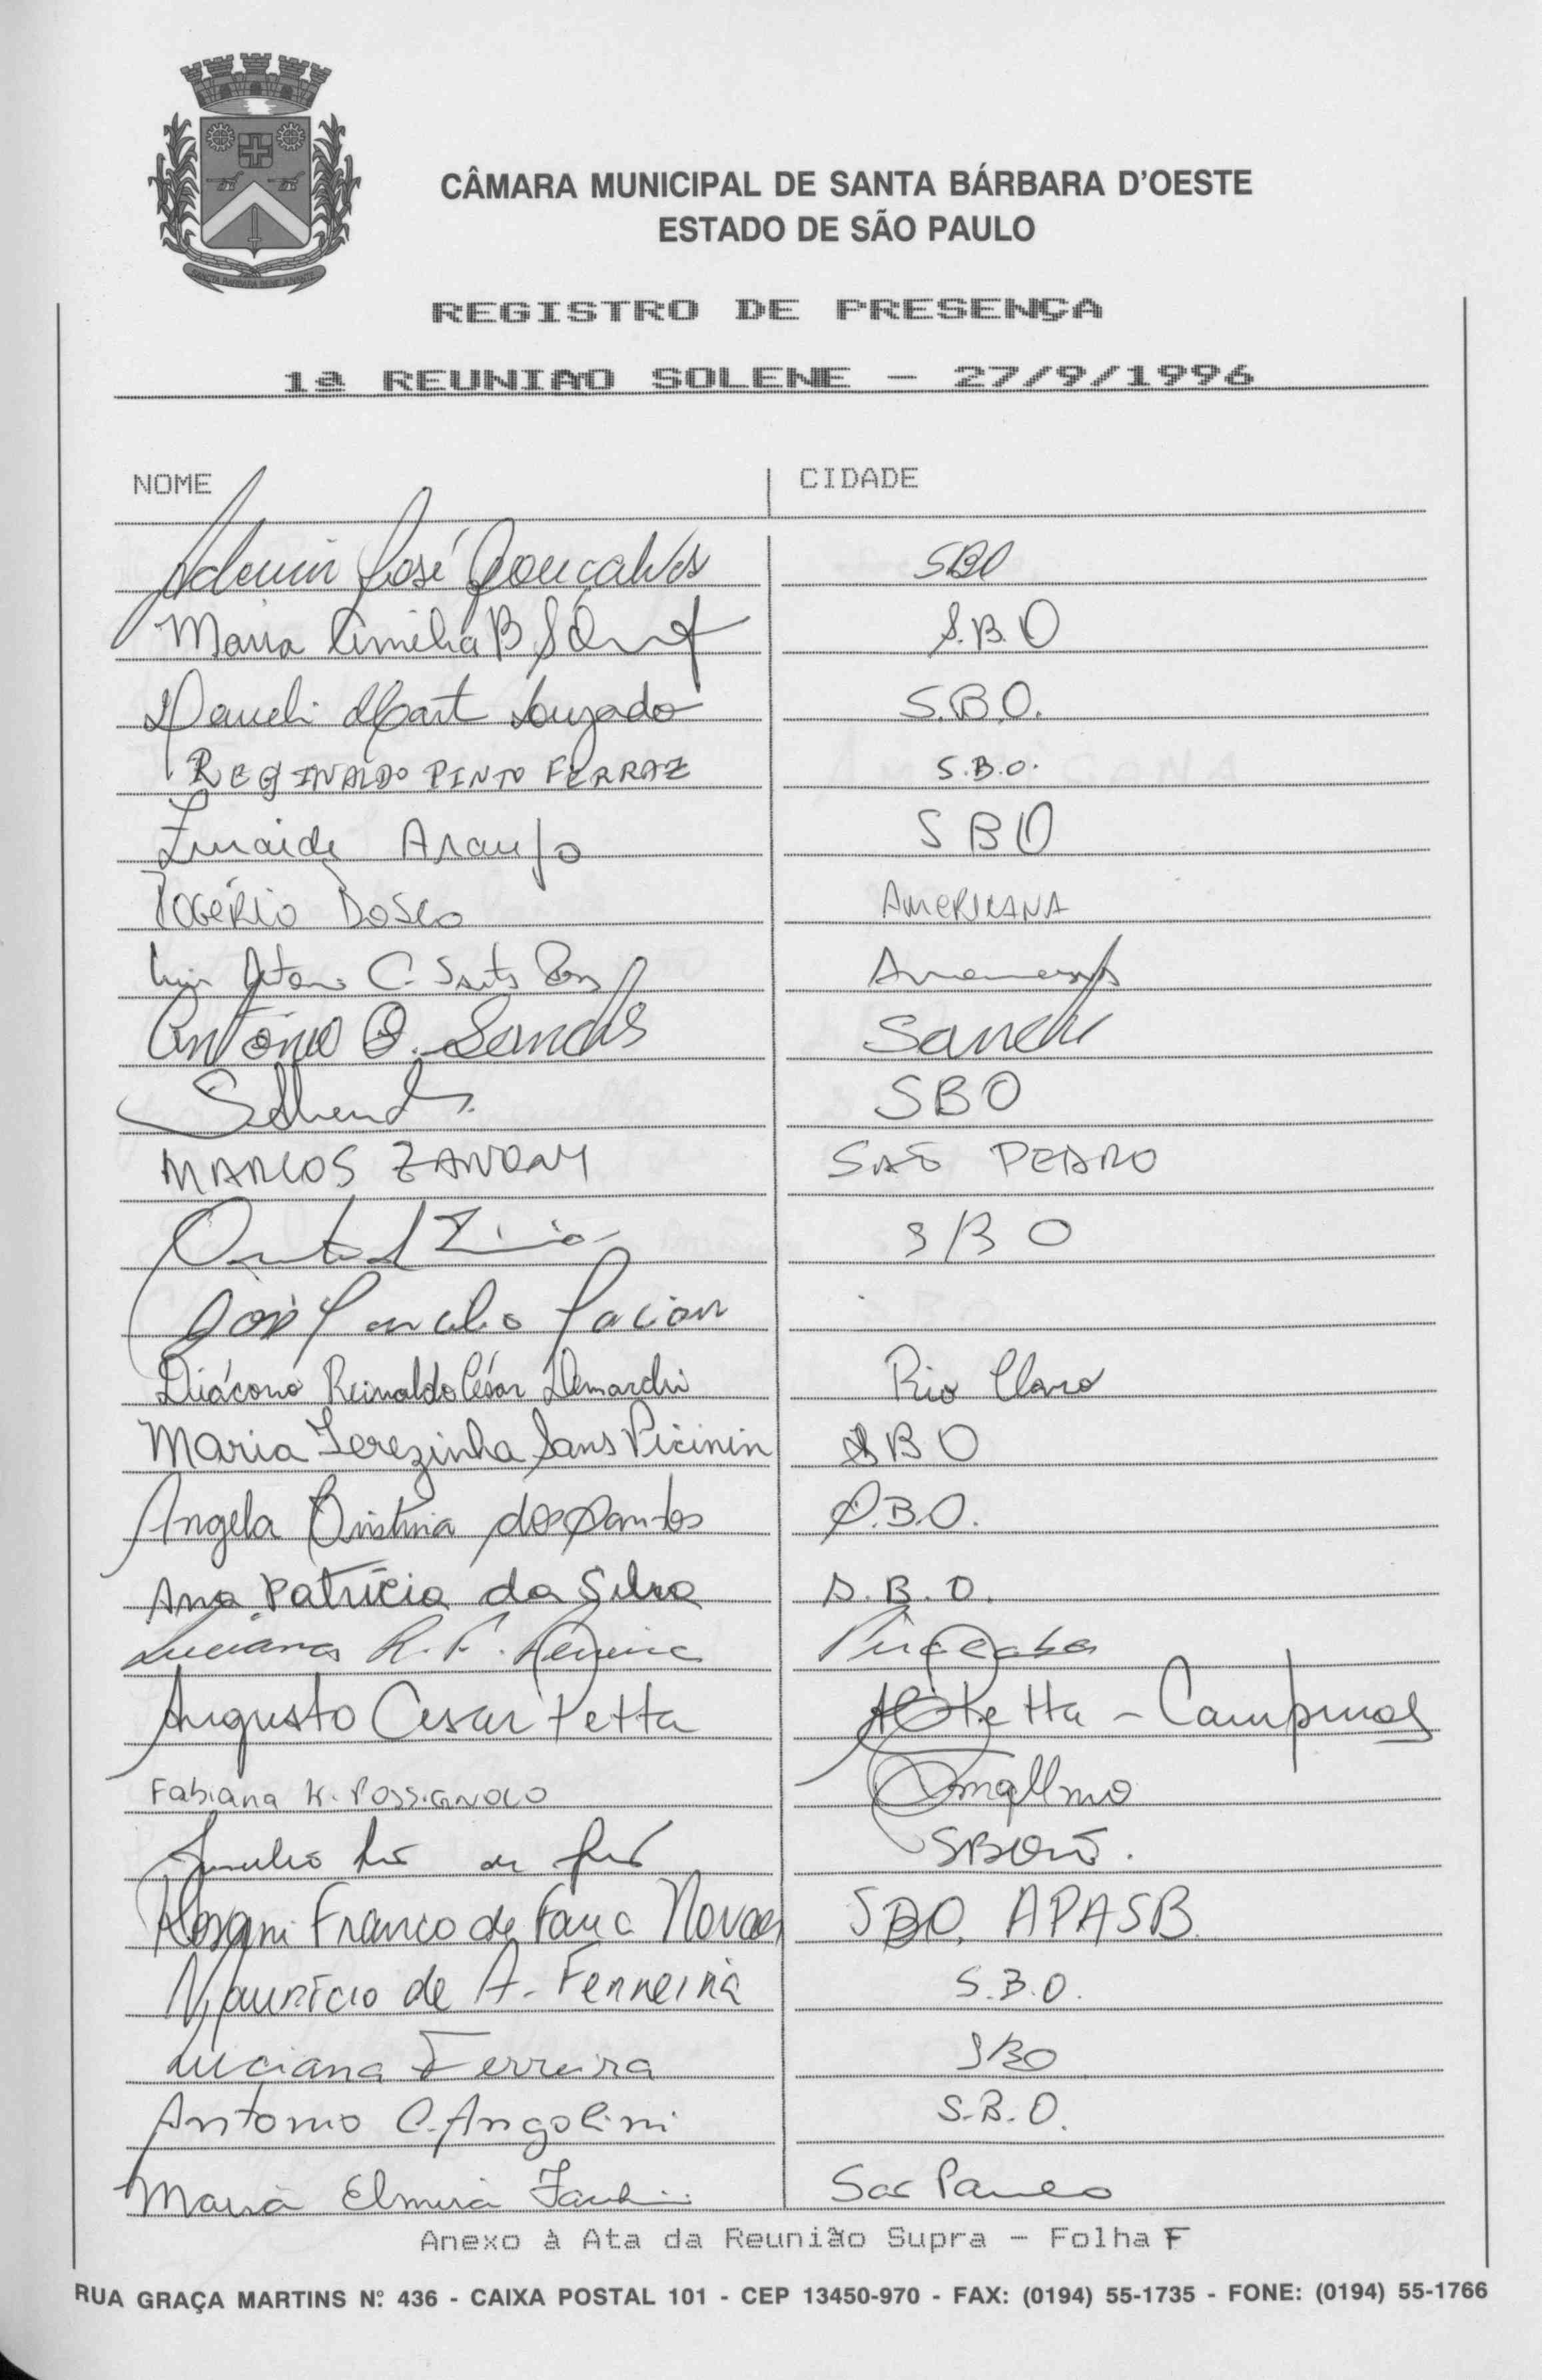 SANCTA BARBARA BENE AMANTE
CÂMARA MUNICIPAL DE SANTA BÁRBARA D'OESTE
ESTADO DE SÃO PAULO
REGISTRO DE PRESENÇA
1ª REUNIAO SOLENE - 27/9/1996
NOME CIDADE
Ademir José Gonçalves SBO
Maria Amélia B S.B.O
S.B.O.
REGINALDO PINTO FERRAZ S.B.O.
Araujo SBO
ROGÉRIO BOSCO AMERICANA
C. Santos
Antônio O. Sanches
SBO
MARCOS ZANONY SAO PEDRO
SBO
José
Diácono Reinaldo César Demarchi Rio Claro
Maria Terezinha Sans Picinin SBO
Angela Cristina dos Santos S.B.O.
Ana Patrícia da Silva S.B.O.
Luciana R. F. Pereira Piracicaba
Augusto Cesar Petta Petta - Campinas
Fabiana K. POSSIGNOLO
de
Rosani Franco de Faria Novaes SBO. APASB.
Maurício de A. Ferreira S.B.O.
Luciana Ferreira SBO
Antonio C. Angolini S.B.O.
Maria Elmira Sao Paulo
Anexo à Ata da Reunião Supra - Folha F
RUA GRAÇA MARTINS Nº 436 - CAIXA POSTAL 101 - CEP 13450-970 - FAX: (0194) 55-1735 - FONE: (0194) 55-1766